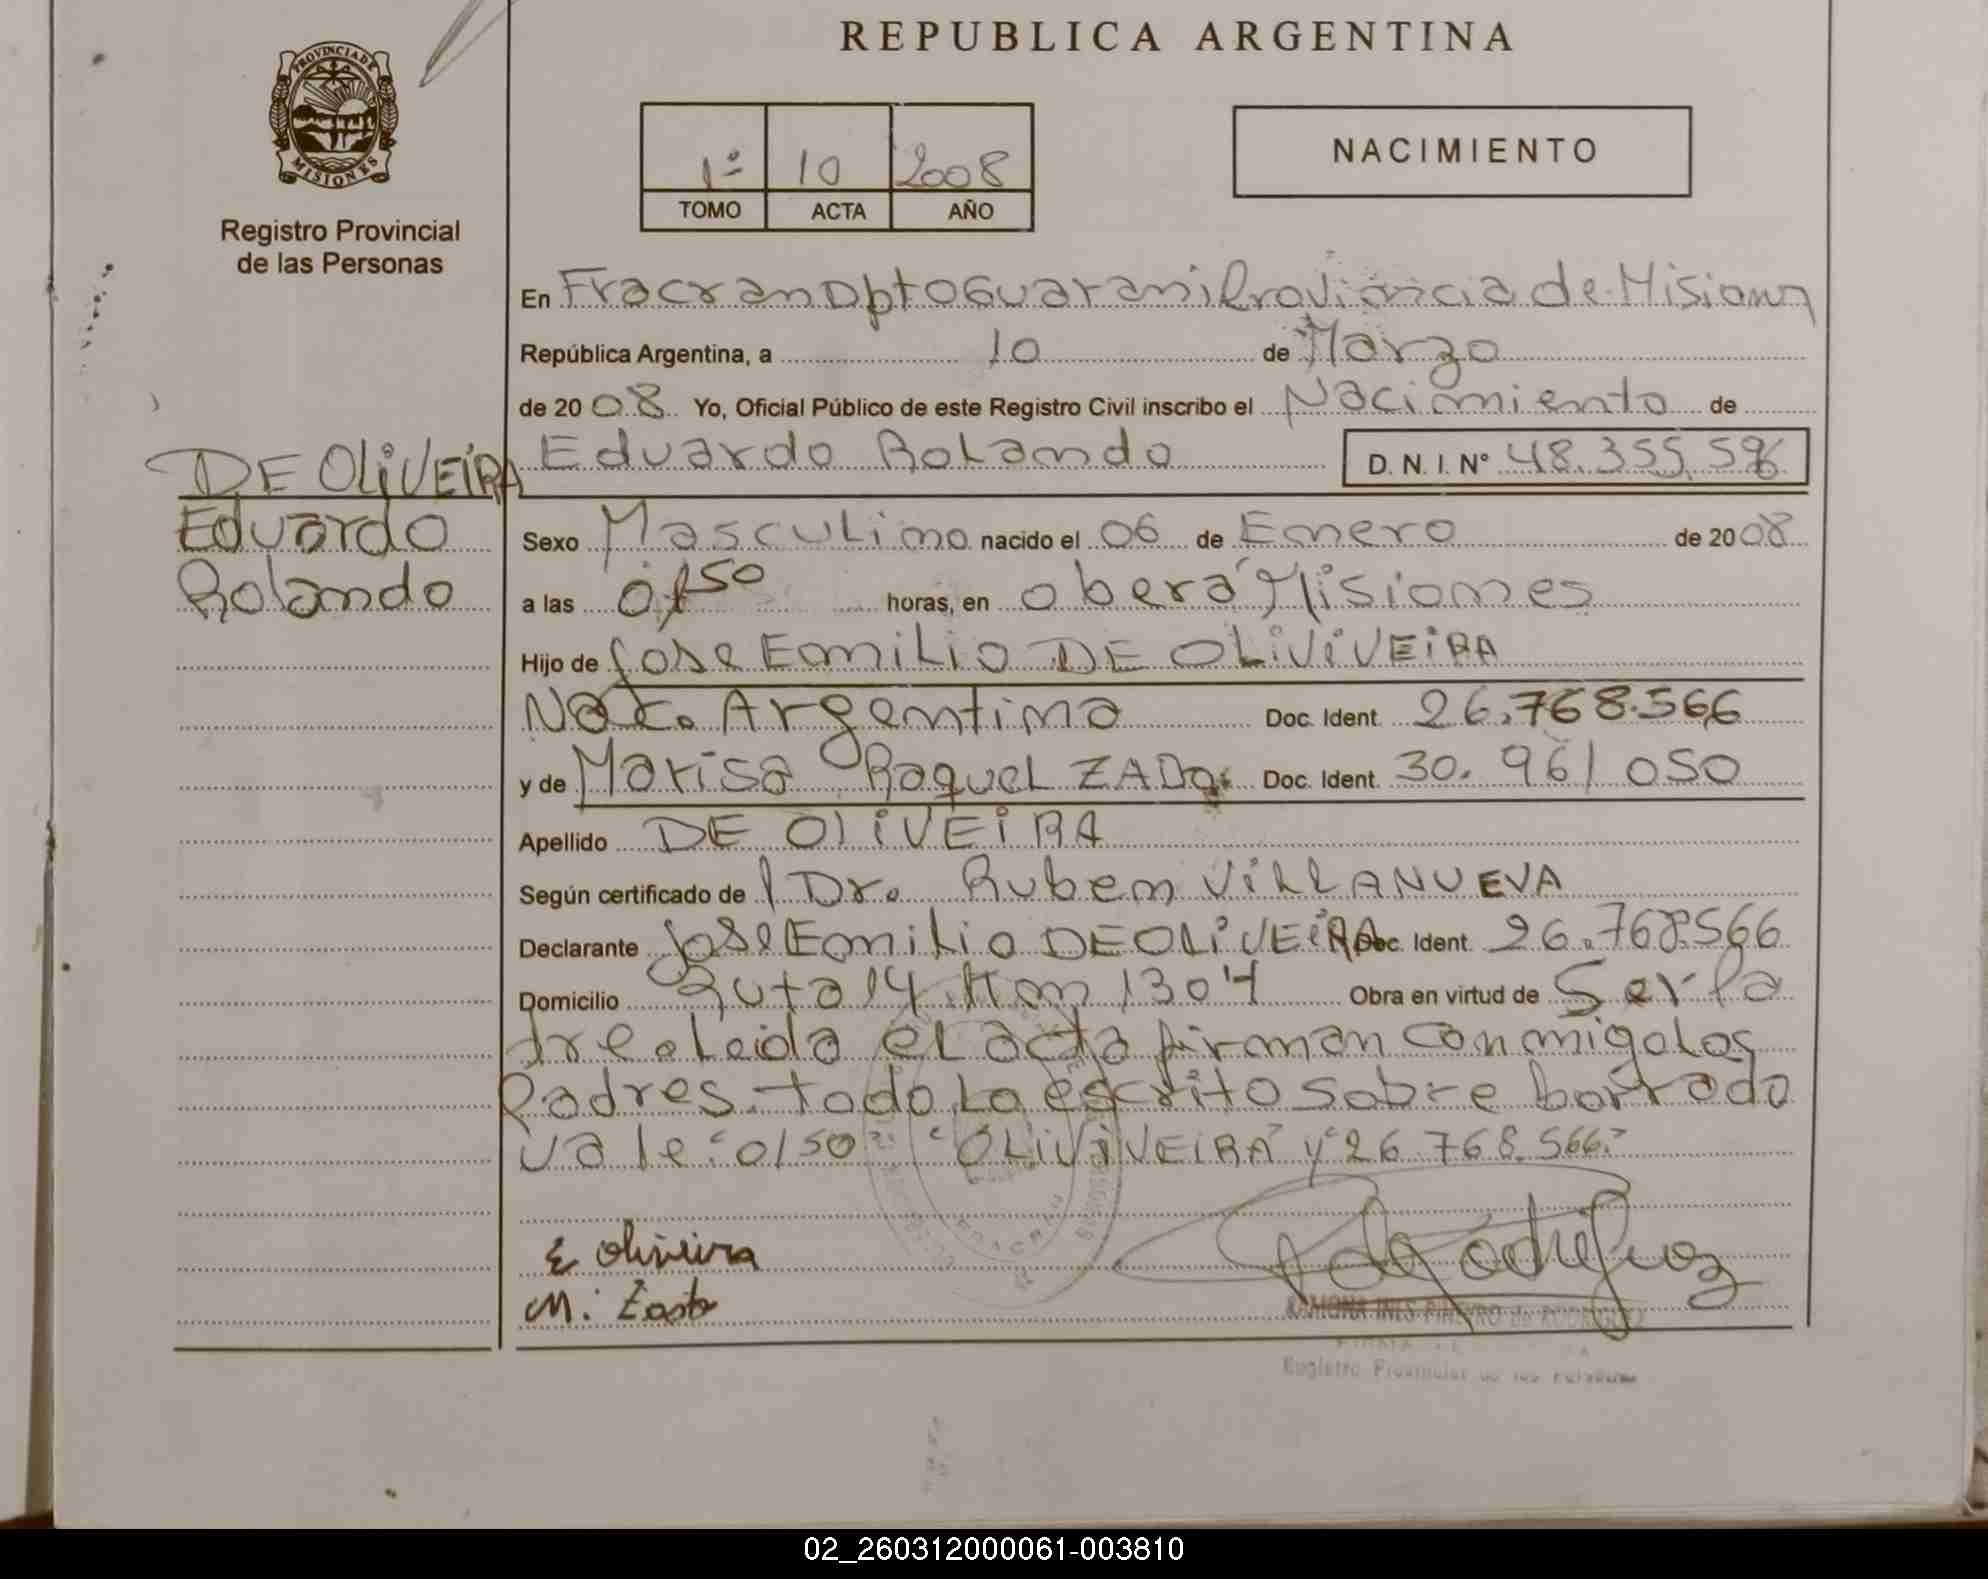 REPUBLICA ARGENTINA
PROVINCIA DE MISIONES
Registro Provincial
de las Personas
1º 10 2008
TOMO ACTA AÑO
NACIMIENTO
En Fracran Dpto Guarani Provincia de Misiones
República Argentina, a 10 de Marzo
de 2008 Yo, Oficial Público de este Registro Civil inscribo el Nacimiento de
DE OLIVEIRA Eduardo Rolando D. N. I. Nº 48.355.596
Eduardo
Rolando
Sexo Masculino nacido el 06 de Enero de 2008
a las 01 50 horas, en obera Misiones
Hijo de Jose Emilio DE OLIVIVEIRA
Nac. Argentina Doc. Ident. 26.768.566
y de Marisa Raquel Doc. Ident. 30.961 050
Apellido DE OLIVEIRA
Según certificado de Dr. Ruben VILLANUEVA
Declarante Jose Emilio DE OLIVEIRA Doc. Ident. 26.768.566
Domicilio Ruta 14 Km 1304 Obra en virtud de Ser Pa
dre. Leida el acta firman conmigo los
Padres. todo Lo escrito sobre borrado
vale: "0150" "OLIVIVEIRA" y "26.768.566."
E oliveira
M.
RAMONA INES PIÑEYRO de RODRIGUEZ
Registro Provincial de las Personas
02_260312000061-003810